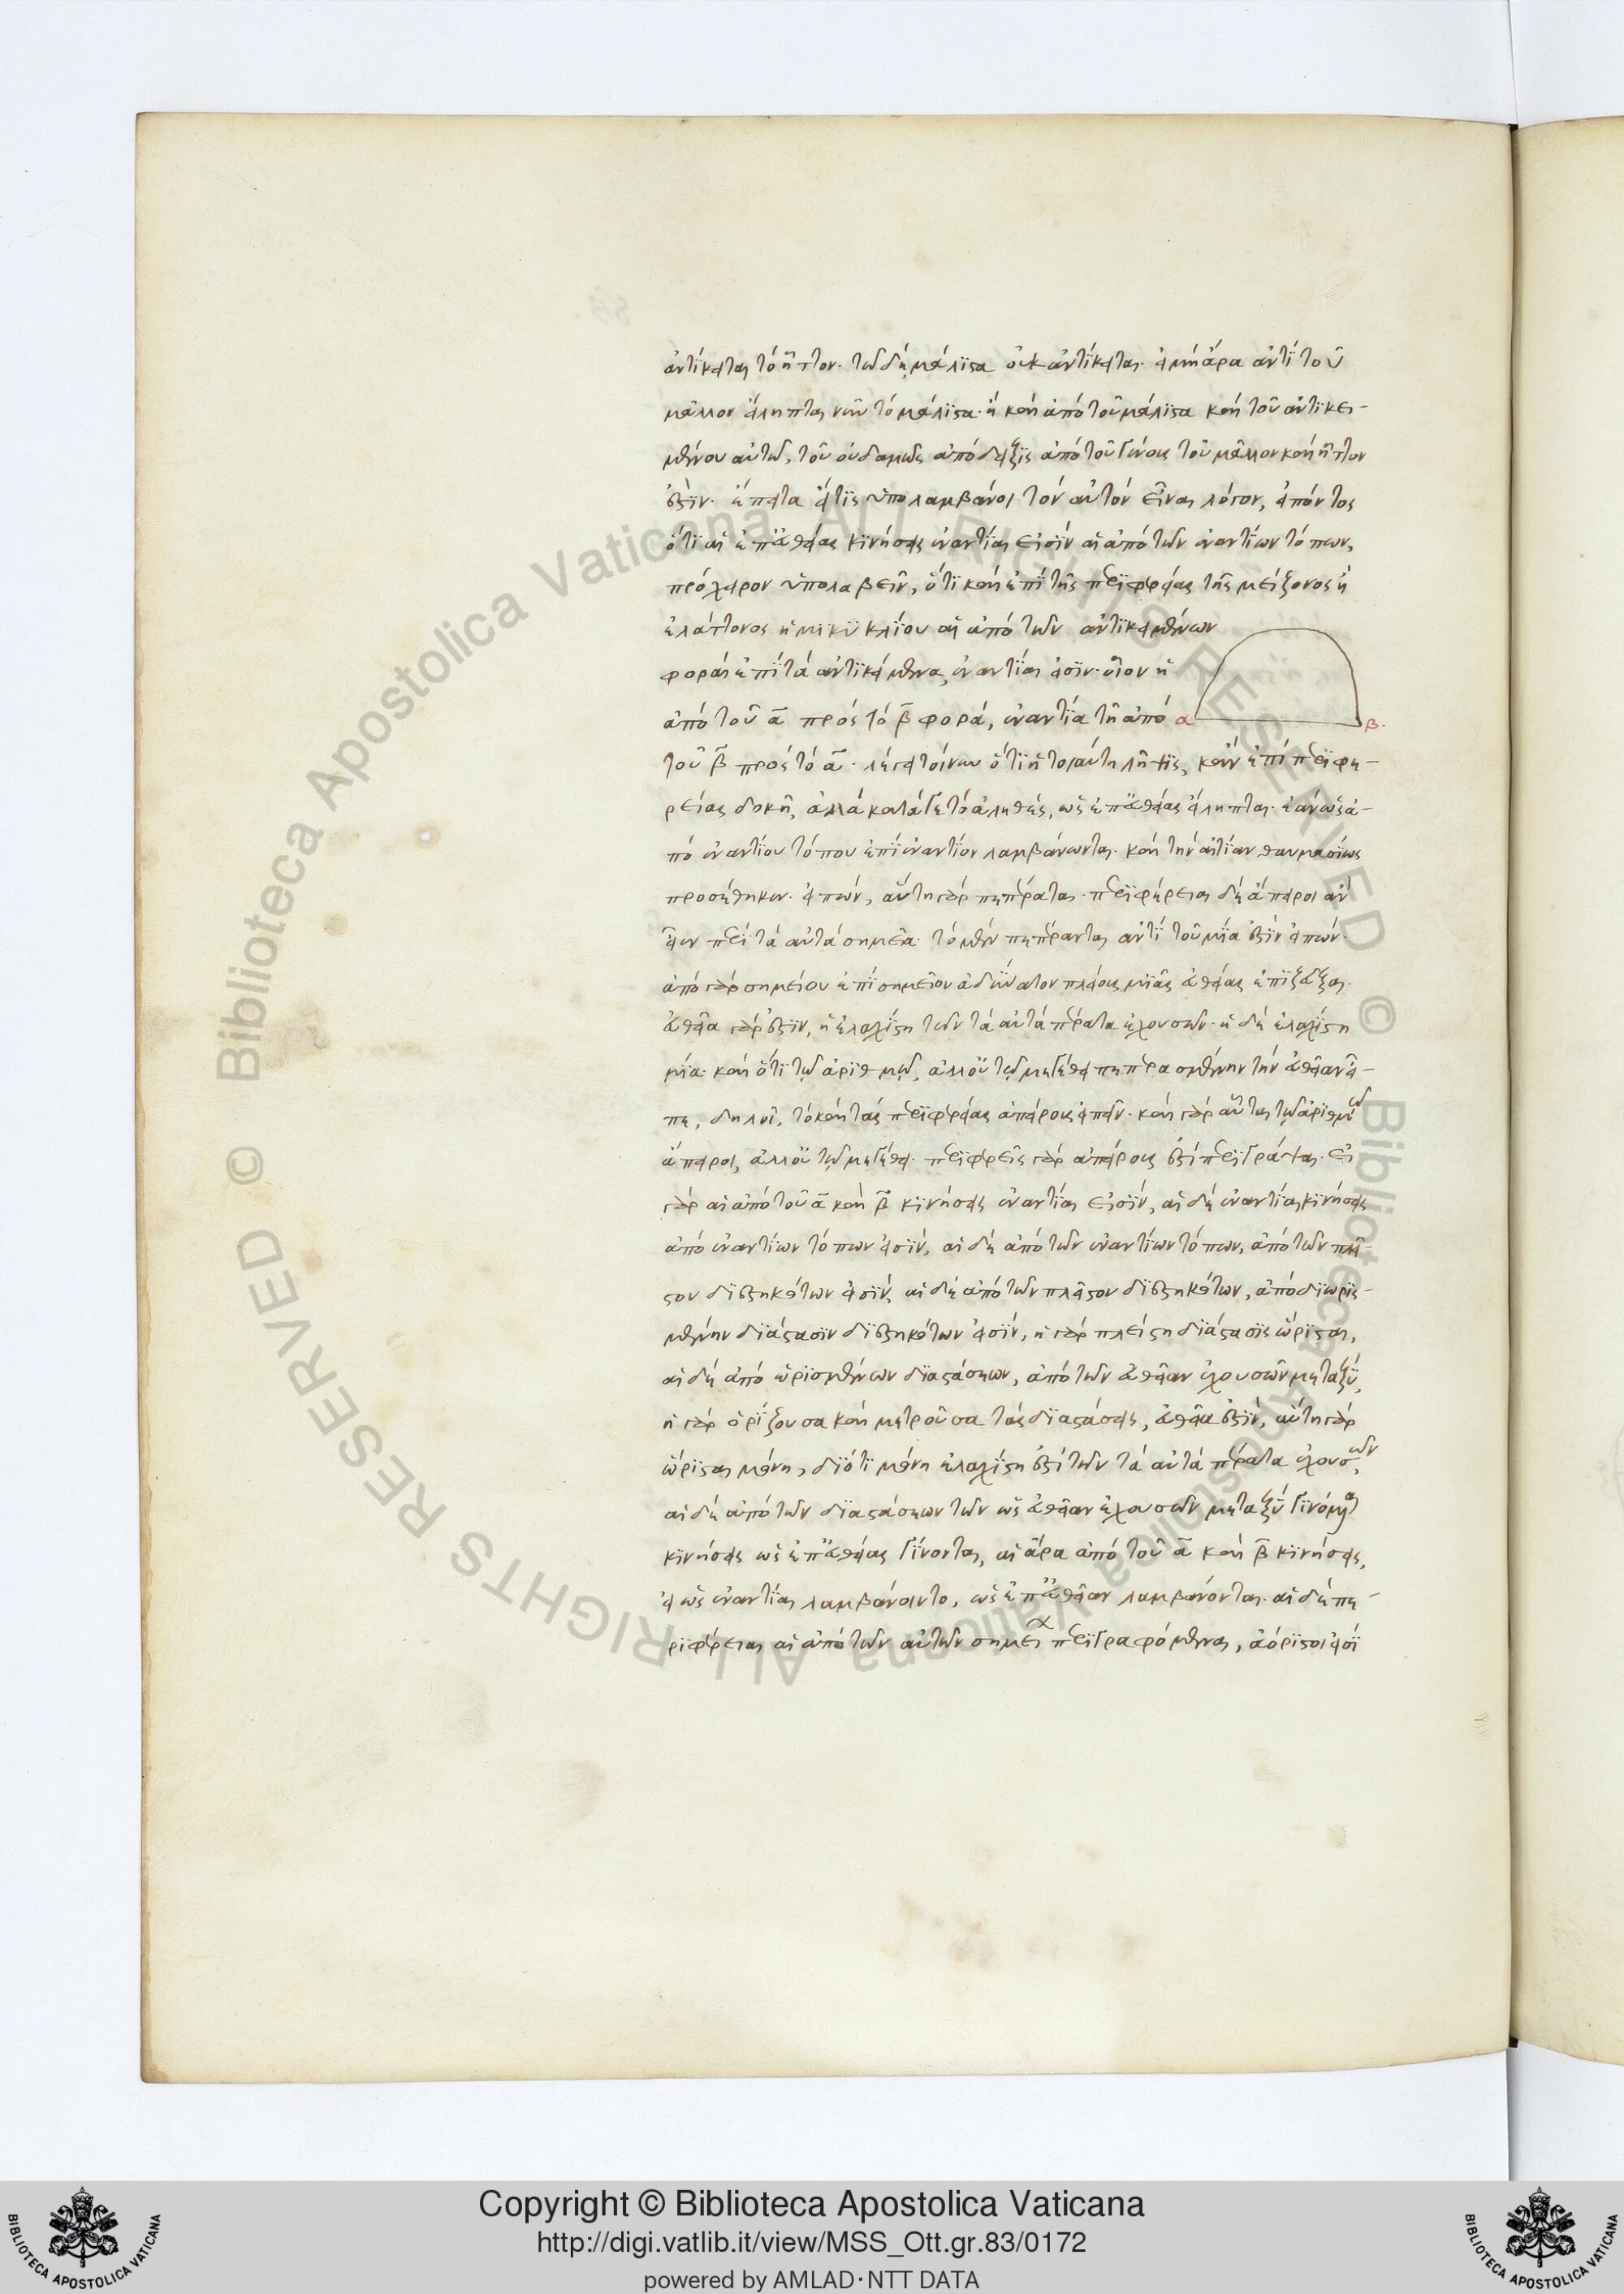 ἀντίκειται τὸ ἧττον. τῷ δὲ μάλιστα οὐκ ἀντίκειται. εἰ μὴ ἄρα ἀντὶ τοῦ
μᾶλλον εἴληπται νῦν τὸ μάλιστα. ἢ καὶ ἀπὸ τοῦ μάλιστα καὶ τοῦ ἀντικει-
μένου αὐτῷ, τοῦ οὐδαμῶς ἀπόδειξις ἀπὸ τοῦ γένους τοῦ μᾶλλον καὶ ἧττον
ἐστὶν. ἔπειτα εἴ τις ὑπολαμβάνοι τὸν αὐτὸν εἶναι λόγον, εἰπόντος
ὅτι αἱ ἐπ' εὐθείας κινήσεις ἐναντίαι εἰσὶν αἱ ἀπὸ τῶν ἐναντίων τόπων,
πρόχειρον ὑπολαβεῖν, ὅτι καὶ ἐπὶ τῆς περιφερείας τῆς μείζονος ἢ
ἐλάττονος ἡμικυκλίου αἱ ἀπὸ τῶν ἀντικειμένων
φοραὶ ἐπὶ τὰ ἀντικείμενα, ἐναντίαι εἰσὶν. οἷον ἡ
ἀπὸ τοῦ α πρὸς τὸ β φορά, ἐναντία τῇ ἀπὸ
α β.
τοῦ β πρὸς τὸ α. λέγει τοίνυν ὅτι ἡ τοιαύτη λῆψις, κἂν ἐπὶ περιφε-
ρείας δοκῇ, ἀλλὰ κατά γε τὸ ἀληθές, ὡς ἐπ' εὐθείας εἴληπται. ἐὰν ὡς ἀ-
πὸ ἐναντίου τόπου ἐπὶ ἐναντίον λαμβάνωνται. καὶ τὴν αἰτίαν θαυμασίως
προσέθηκεν. εἰπών, αὕτη γὰρ πεπέραται. περιφέρειαι δὲ ἄπειροι ἂν
εἶεν περὶ τὰ αὐτὰ σημεῖα. τὸ μὲν πεπέρανται ἀντὶ τοῦ μία ἐστὶν εἰπών.
ἀπὸ γὰρ σημείου ἐπὶ σημεῖον ἀδύνατον πλείους μιᾶς εὐθείας ἐπιζεῦξαι.
εὐθεῖα γάρ ἐστιν, ἡ ἐλαχίστη τῶν τὰ αὐτὰ πέρατα ἐχουσῶν. ἡ δὲ ἐλαχίστη
μία. καὶ ὅτι τῷ ἀριθμῷ, ἀλλ' οὐ τῷ μεγέθει πεπερασμένην τὴν εὐθεῖαν εἶ-
πε, δηλοῖ, τὸ καὶ τὰς περιφερείας ἀπείρους εἰπεῖν. καὶ γὰρ αὗται τῷ ἀριθμῷ
ἄπειροι, ἀλλ' οὐ τῷ μεγέθει. περιφερεῖς γὰρ ἀπείρους ἐστὶ περιγράψαι. εἰ
γὰρ αἱ ἀπὸ τοῦ α καὶ β κινήσεις ἐναντίαι εἰσὶν, αἱ δὲ ἐναντίαι κινήσεις
ἀπὸ ἐναντίων τόπων εἰσὶν, αἱ δὲ ἀπὸ τῶν ἐναντίων τόπων, ἀπὸ τῶν πλεῖ-
στον διεστηκότων εἰσίν, αἱ δὲ ἀπὸ τῶν πλεῖστον διεστηκότων, ἀπὸ διωρισ-
μένην διάστασιν διεστηκότων εἰσίν, ἡ γὰρ πλείστη διάστασις ὥρισται,
αἱ δὲ ἀπὸ ὡρισμένων διαστάσεων, ἀπὸ τῶν εὐθεῖαν ἐχουσῶν μεταξύ,
ἡ γὰρ ὁρίζουσα καὶ μετροῦσα τὰς διαστάσεις, εὐθεῖα ἐστίν, αὕτη γὰρ
ὥρισται μόνη, διότι μόνη ἐλαχίστη ἐστὶ τῶν τὰ αὐτὰ πέρατα ἐχουσῶν,
αἱ δὲ ἀπὸ τῶν διαστάσεων τῶν ὡς εὐθεῖαν ἐχουσῶν μεταξὺ γινόμεναι
κινήσεις ὡς ἐπ' εὐθείας γίνονται, αἱ ἄρα ἀπὸ τοῦ α καὶ β κινήσεις,
εἰ ὡς ἐναντίαι λαμβάνοιντο, ὡς ἐπ' εὐθεῖαν λαμβάνονται. αἱ δὲ πε-
ριφέρειαι αἱ ἀπὸ τῶν αὐτῶν σημείων περιγραφόμεναι, ἀόριστοι εἰσὶ
Copyright © Biblioteca Apostolica Vaticana
http://digi.vatlib.it/view/MSS_Ott.gr.83/0172
powered by AMLAD·NTT DATA
BIBLIOTECA APOSTOLICA VATICANA
BIBLIOTECA APOSTOLICA VATICANA
© Biblioteca Apostolica Vaticana ALL RIGHTS RESERVED © Biblioteca Apostolica Vaticana ALL RIGHTS RESERVED